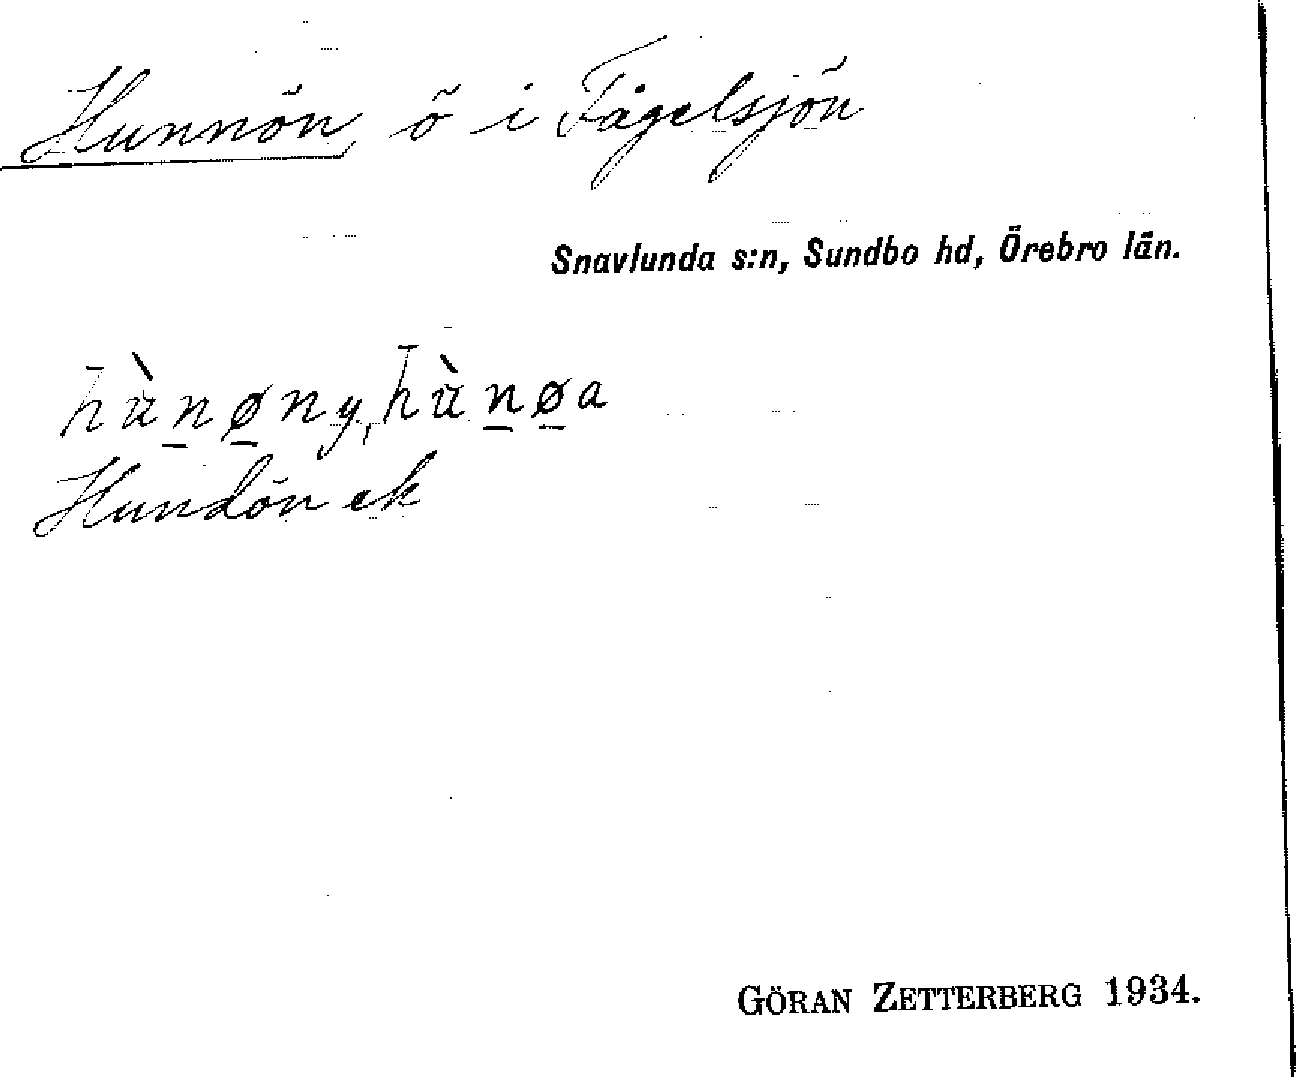 Hunnön, ö i Fågelsjön
Snavlunda s:n, Sundbo hd, Örebro län.
hùn̲ø̲ny, hùn̲ø̲a
Hundön ek
GÖRAN ZETTERBERG 1934.